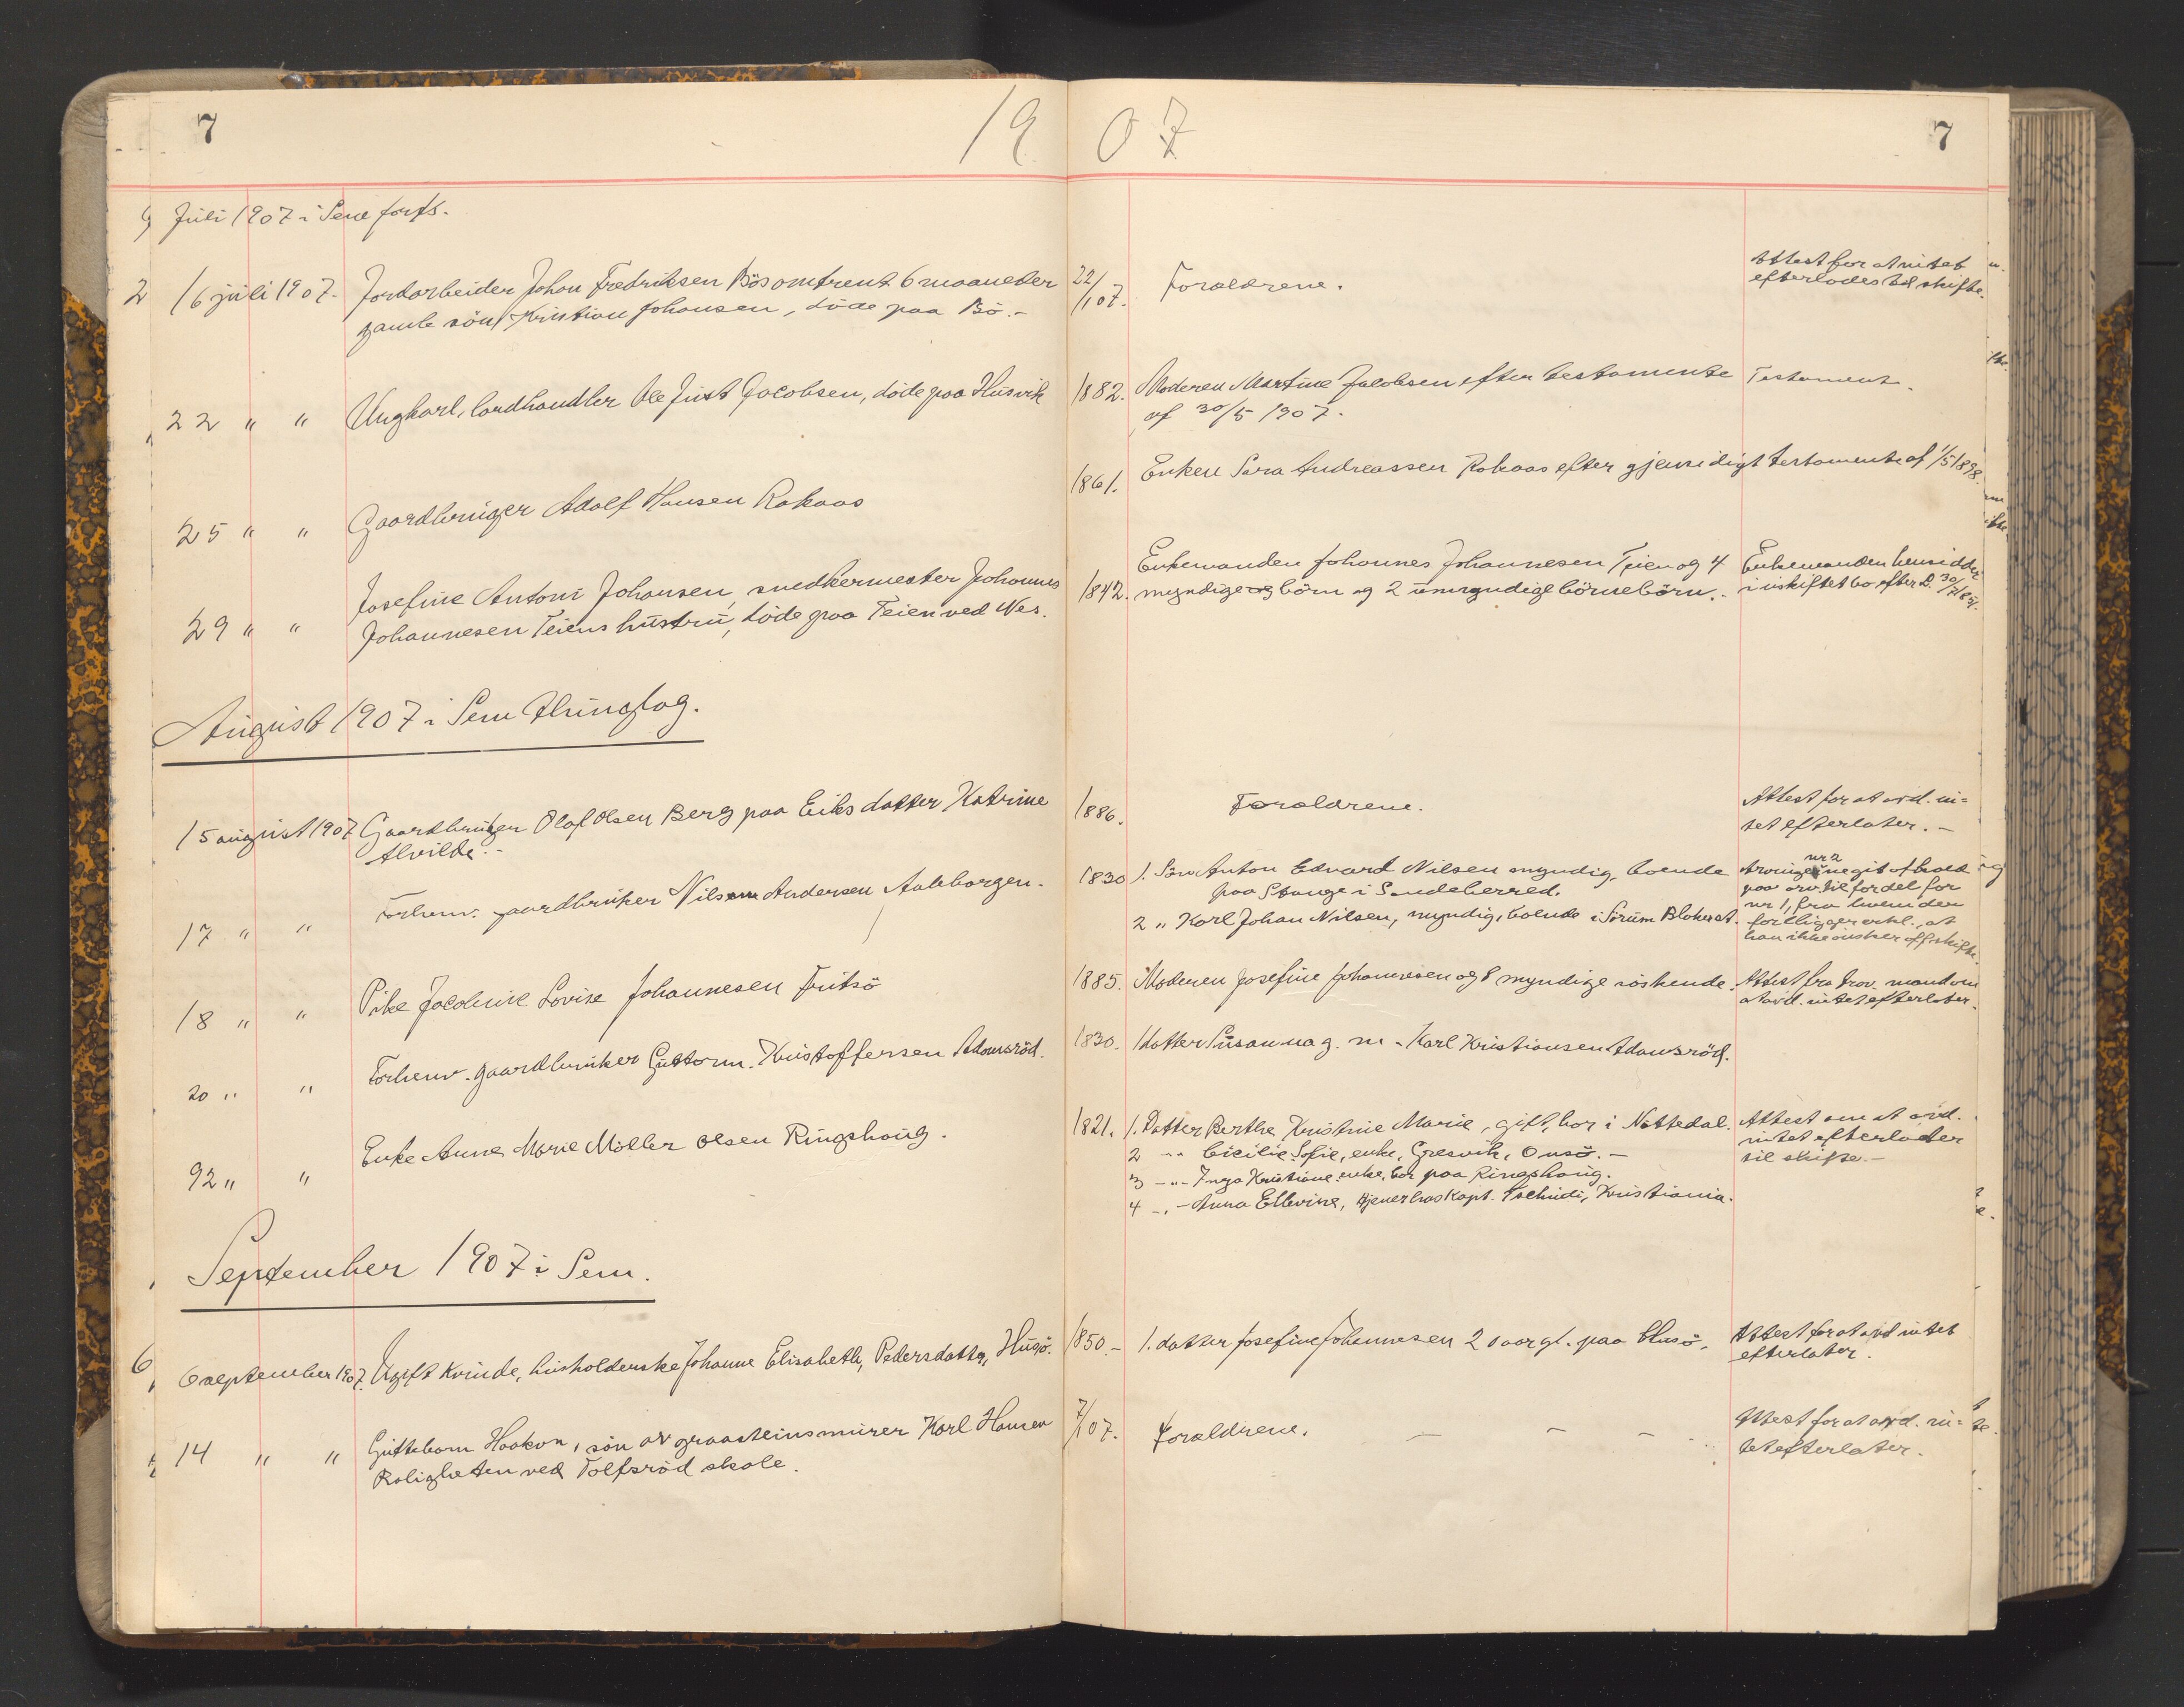 7
19 07
7
Juli 1907 i Sem forts.
2 16 juli 1907. Jordarbeider Johan Fredriksen Bös omtrent 6 maaneder
gamle sön Kristian Johansen, döde paa Bö.-
22/1 07. Forældrene.
Attest for at intet
efterlodes til skifte.
22 " " Ungkarl, landhandler Ole Just Jacobsen, döde paa Husvik
1882. Moderen Martine Jacobsen efter testamente
af 30/5 1907.
Testament.
25 " " Gaardbruger Adolf Hansen Rakaas
1861. Enken Sara Andreassen Rakaas efter gjensidigt testamente af 1/5 1898.
29 " " Josefine Antoni Johansen, snedkermester Johannes
Johannesen Teiens hustru, döde paa Teien ved Nes.
1842. Enkemanden Johannes Johannesen Teien og 4
myndige börn og 2 umyndige börnebörn.-
Enkemanden hensidder
i uskiftet bo efter L. 30/7 1851.
August 1907 i Sem Thinglag.
15 august 1907 Gaardbruger Olaf Olsen Berg paa Eiks datter Katrine
Alvilde.-
1886. Forældrene.
Attest for at avd. in=
tet efterlater.-
17 " " Forhenv. gaardbruker Nils Andersen Aaleborgen.
1830 1. Sön Anton Edvard Nilsen myndig, boende
paa Stange i Sandeherred.
2 " Karl Johan Nilsen, myndig, boende i Sörum Blakerst.
nr 2
Arvingene git afkald
paa arv til fordel for
nr 1, fra hvem der
foreligger erkl. at
han ikke önsker off. skifte.
18 " " Pike Jacobine Lovise Johannesen Fritsö
1885. Moderen Josefine Johannesen og 8 myndige söskende.
Attest fra prov. mand om
at avd. intet efterlater.
20 " " Forhenv. gaardbruker Guttorm Kristoffersen Adamsröd.
1830. 1 datter Susanna g. m. Karl Kristiansen Adamsröd.
92 " " Enke Anne Marie Möller Olsen Ringshaug.
1821. 1. Datter Berthe Kristine Marie, gift, bor i Nattedal.
2 -"- Cicilie Sofie, enke, Gresvik, Onsö.-
3 -"- Inga Kristiane enke, bor paa Ringshaug.
4 -"- Anna Ellevine, tjener hos Kapt. Tschudi, Kristiania.
Attest om at avd.
intet efterlader
til skifte.-
September 1907 i Sem.
6 6 september 1907. Ugift kvinde, husholderske Johanne Elisabeth Pedersdatter, Husö.
1850.- 1. datter Josefine Johannesen 20 aar gl. paa Husö.
Attest for at avd intet
efterlater.
14 " " Guttebarn Haakon, sön av graasteinsmurer Karl Hansen
Roligheten ved Tolfsröd skole.
7/1 07. Forældrene. - - -
Attest for at avd. in=
tet efterlater.